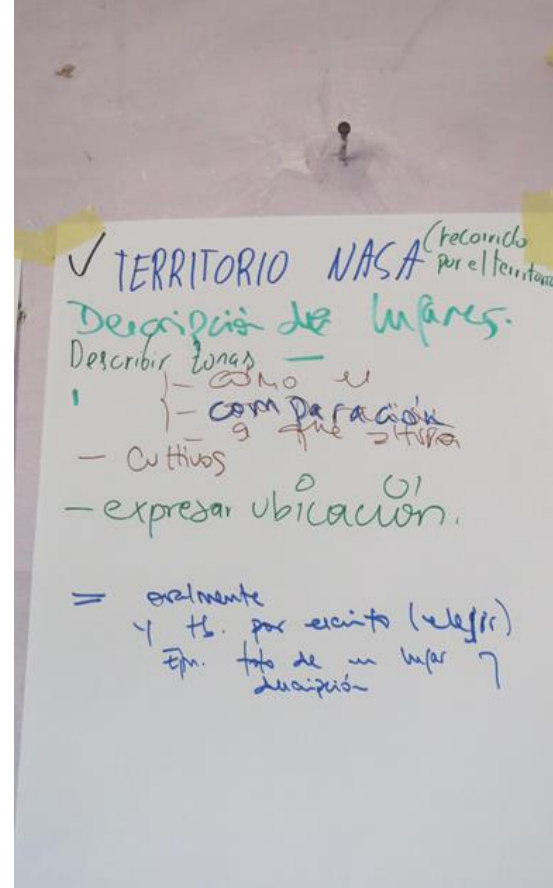 ✓ TERRITORIO NASA (recorrido
por el territorio
Descripción de lugares.
Describir zonas —
- cómo es
- comparación
- a que altura
- Cultivos
- expresar ubicación.
= oralmente
y tb. por escrito (elegir)
Ejm. foto de un lugar y
descripción